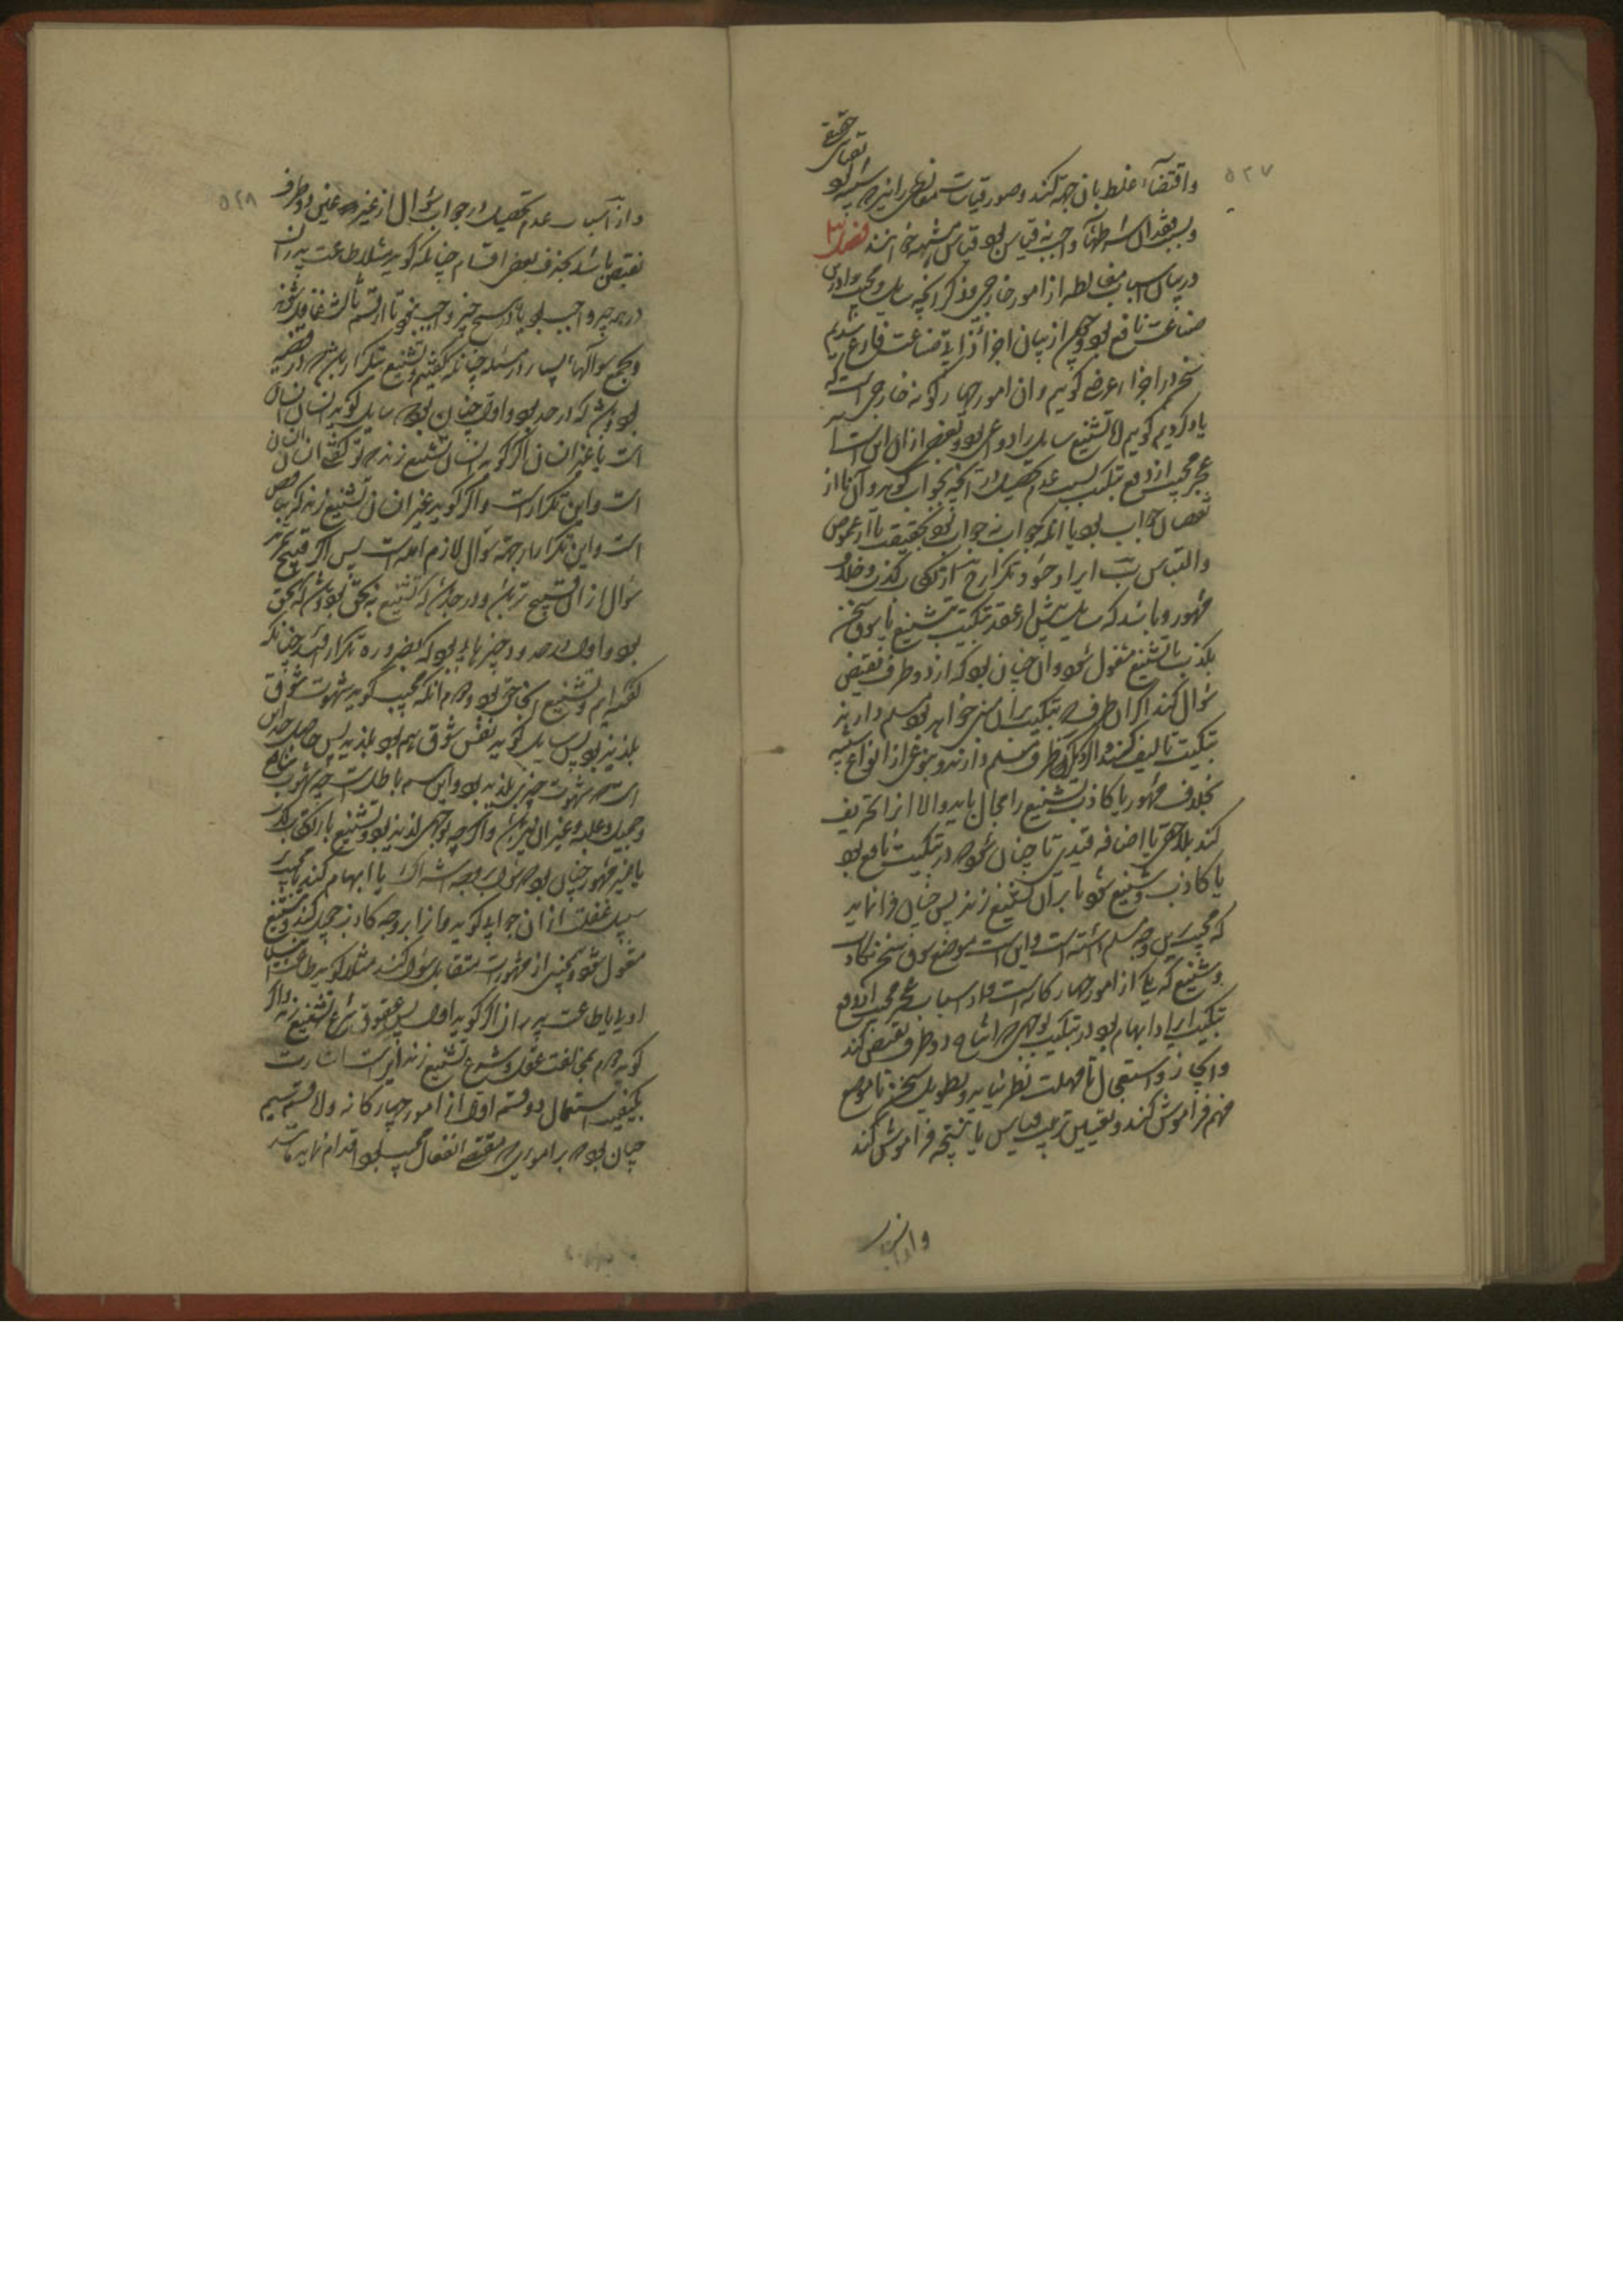 ۵۲۷
واقتضاء غلط بان جهة کند و صور قیاسات مغالطی را نیز که شبیه بود
بقیاس حقیقی
و بفقدان شرطها واجب نه قیاس بود قیاس مشبه خوانند فصل
در بیان اسباب مغالطه از امور خارجی و ذکر آنچه سایل و مجیب را در این
صناعت نافع بود و چون از بیان اجزاء ذاتی صناعت فارغ شدیم
سخن در اجزاء عرضی گوییم و ان امور چهارگونه خارجی است که
یاد کردیم گوییم تشنیع سایل را دواعی بود و بعضی از ان اسباب
عجز مجیب از دفع تبکیت بسبب عدم تحصیل در آنچه بجواب گوید و آن یا از
نقصان جواب بود یا آنکه جواب نه جواب بود بحقیقت یا از غموض
والتباس ایراد خود و تکرار
مشهور و باشد که سایل پیش از عقد تبکیت بتشنیع یا سوق سخن
بکذب یا تشنیع مشغول شود و ان چنان بود که از دو طرف نقیض
سؤال کند اگر ان طرف که تبکیت بر ان مبنی خواهد بود مسلم دارند
تبکیت تألیف کند و اگر دیگر طرف مسلم دارند و بنوعی از انواع شبیه
بخلاف مشهور یا کاذب تشنیع را مجال یابد والا انرا تحریف
کند بلاحقی یا اضافه قیدی تا چنان شود که در تبکیت نافع بود
یا کاذب و شنیع شود تا بران تشنیع زند پس چنان فرانماید
که مجیب این وجه مسلم داشته است و این است موضع سوق سخن بکذب
و شنیع که یکی از امور چهارگانه است و از اسباب عجز مجیب از دفع
تبکیت ایراد ابهام بود در تبکیت بوجهی که اشتباه دو طرف نقیض کند
و ایجاز و استعجال تا مهلت نظر نیابد و تطویل سخن تا موضع
مهم فراموش کند و تغییر ترتیب قیاس یا نتیجه فراموش کند
واز
۵۲۸
و از اسباب عدم تحصیل در جواب سؤال از غیر عین دو طرف
نقیض باشد بحذف بعضی اقسام چنانکه گوید مثلا طاعت پدران
در همه چیز واجب بود یا در هیچ چیز واجب نبود تا از قسم ثالث غافل شوند
و جمع سوالهاء بسیار در مسئله چنانکه گفتیم و تشنیع بتکرار باشد که در قضیه
بود و باشد که در حد بود و اول چنان بود که سایل گوید انسان انسان
است یا غیر انسان اگر گوید انسان تشنیع زند که تو گفتی انسان انسان
است و این تکرار است و اگر گوید غیر انسان تشنیع زند که تناقض
است و این تکرار از جهة سؤال لازم آمده است پس اگر قبیح شمرند
سؤال ازان قبیح تر باشد و در حد باشد که تشنیع نه بحق بود و باشد که بحق
بود و اول در حدود چیزهایی بود که بضرورة تکرار افتد چنانکه
گفته ایم و تشنیع انجا حق نبود و دوم انکه مجیب گوید شهوت شوق
بلذیذ بود پس سایل گوید نفس شوق هم بود بلذیذ پس حاصل حد این
است که شهوت چیزی بلذیذ بود و این باطل است چه شهوت بنافع
و جمیل و غلبه و غیر ان نیز باشد و اگرچه بوجهی لذیذ بود و تشنیع بارتکاب کذب
یا غیر مشهور چنان بود که سؤال بر وجه اشتراک یا ابهام کند تا مجیب بر
سبیل غفلت ازان جوابی گوید و انرا بر وجه کاذب حمل کند و بتشنیع
مشغول شود و همچنین از مشهورات متقابل سؤال کند مثلا گوید طاعت خدا
اولی یا طاعت پدران اگر گوید اول بعقوق تشنیع زند و اگر
گوید دوم بمخالفت عقل و شرع تشنیع زند اینست اشارت
بکیفیت استعمال دو قسم اول از امور چهارگانه و اما قسم سیم
چنان بود که بر اموری که مقتضی انفعال مجیب بود اقدام نماید مانند